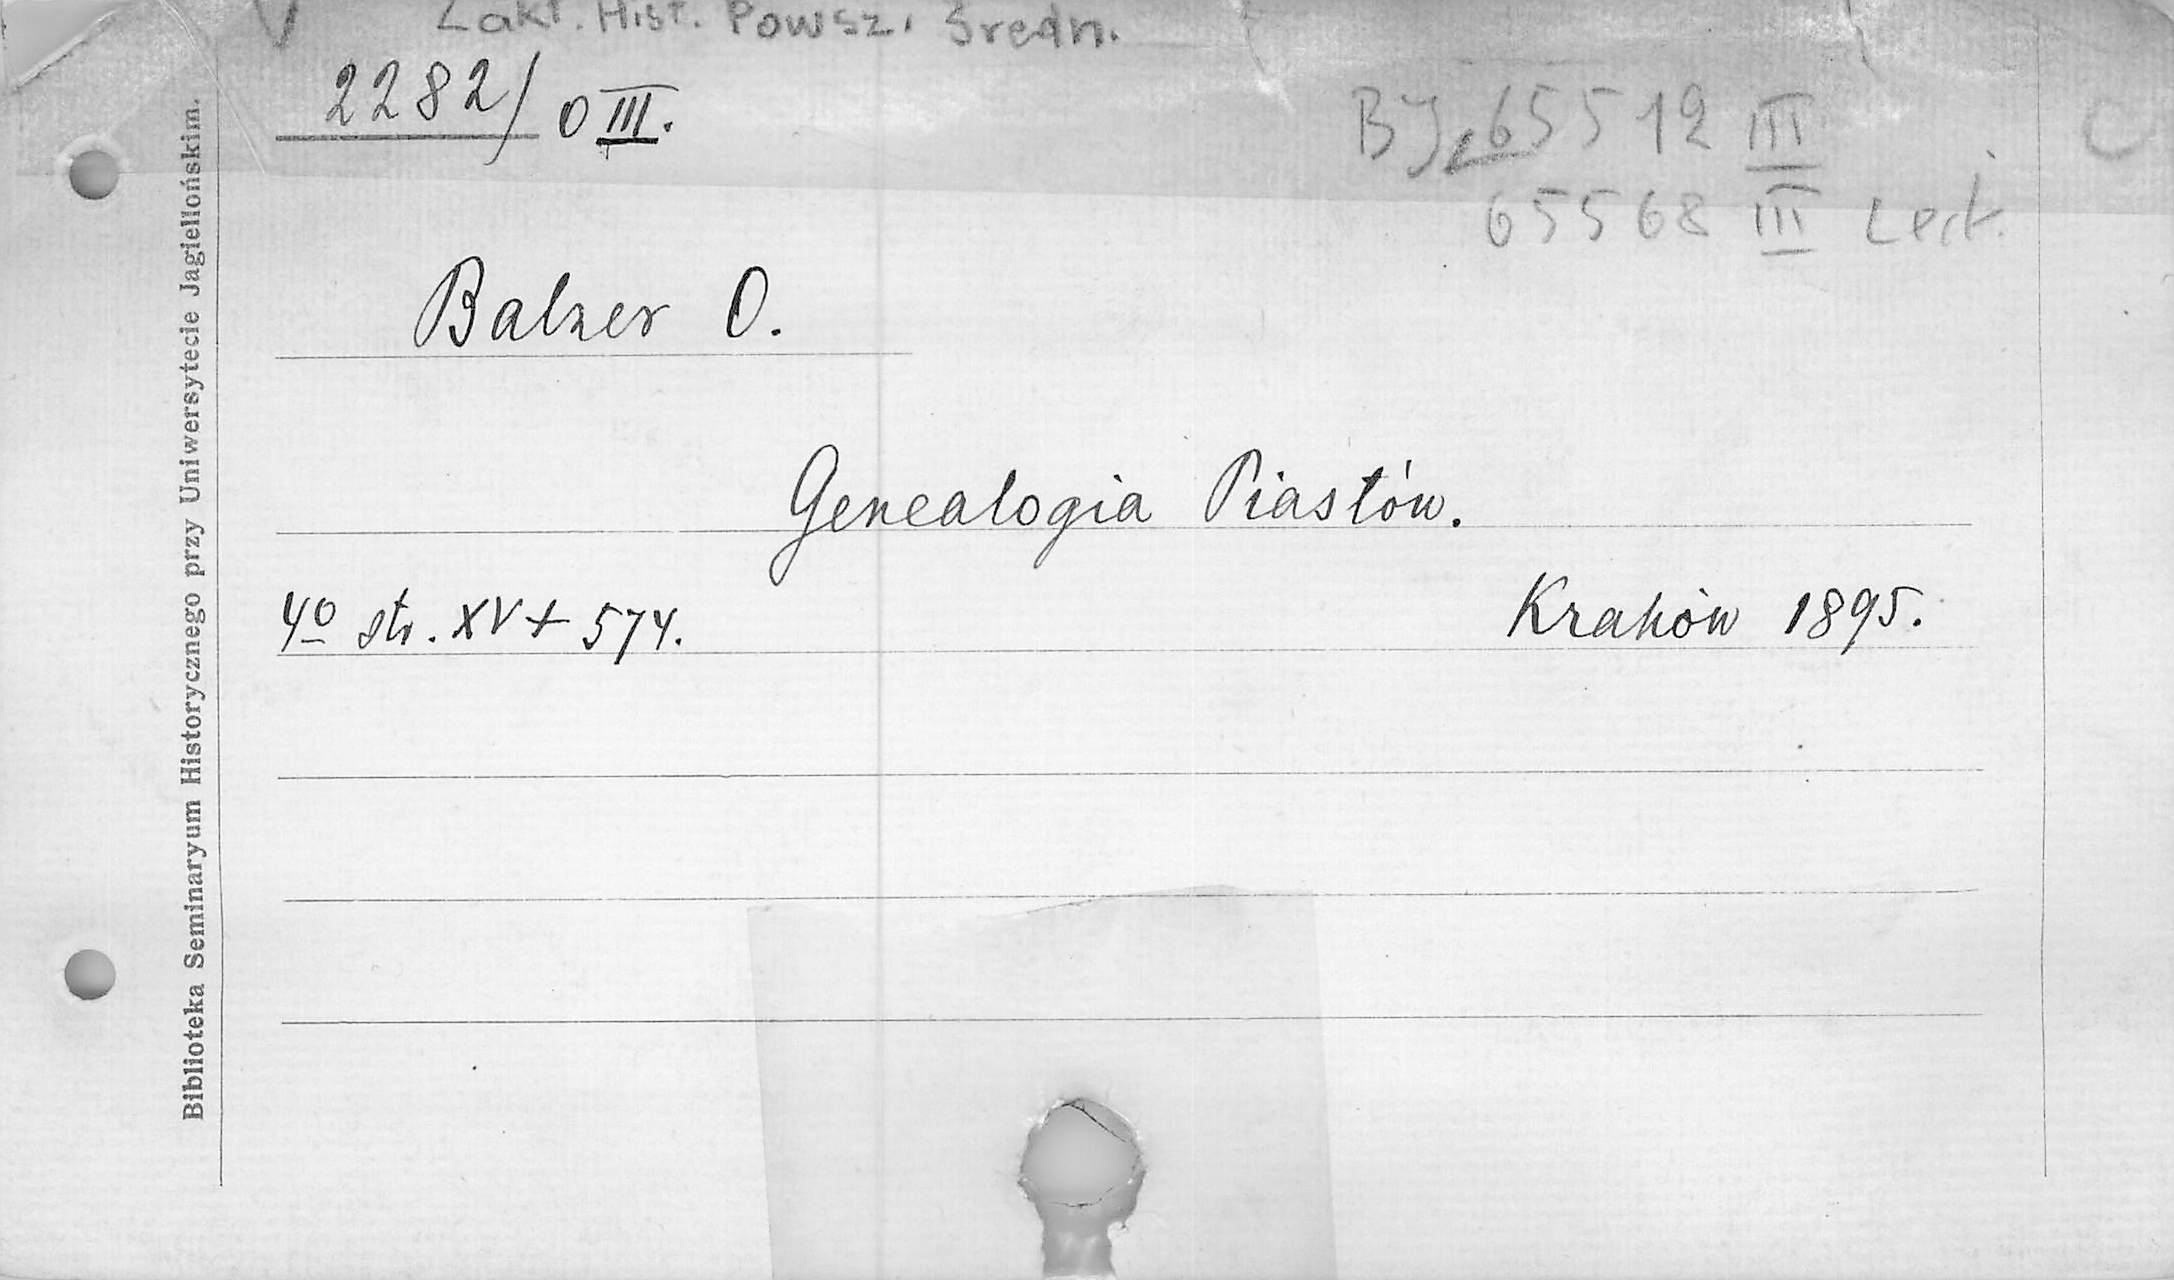 V Zakł. Hist. Powsz. Średn.
2282/ O III.
BJ 65512 III
C
65568 III Lect.
Balzer O.
Genealogia Piastów.
4o str. XV + 574.
Kraków 1895.
Biblioteka Seminaryum Historycznego przy Uniwersytecie Jagiellońskim.